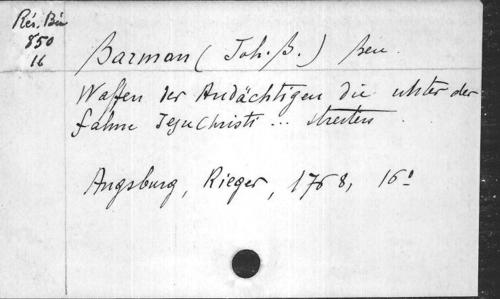 Rés. Bin
850
16
Barman (Joh. B.) Ben.
Waffen der Andächtigen die unter der
fahne Jesu Christi ... streiten.
Augsburg, Rieger, 1768, 16°